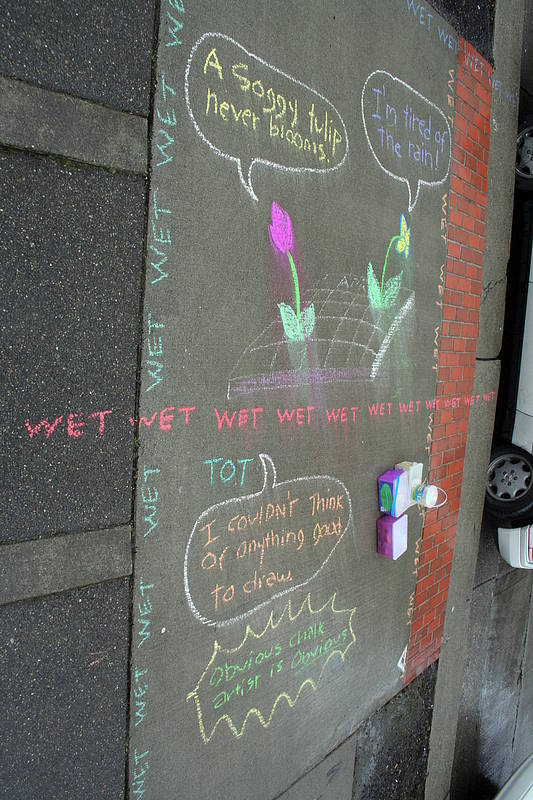 WET WET WET WET
WET WET WET WET WET WET WET WET WET WET WET
A soggy tulip
never blooms.
I'm tired of
the rain!
WET WET WET WET WET WET
WET WET WET WET WET WET WET WET WET WET WET
TOT
I couldn't think
of anything good
to draw
Obvious chalk
artist is Obvious